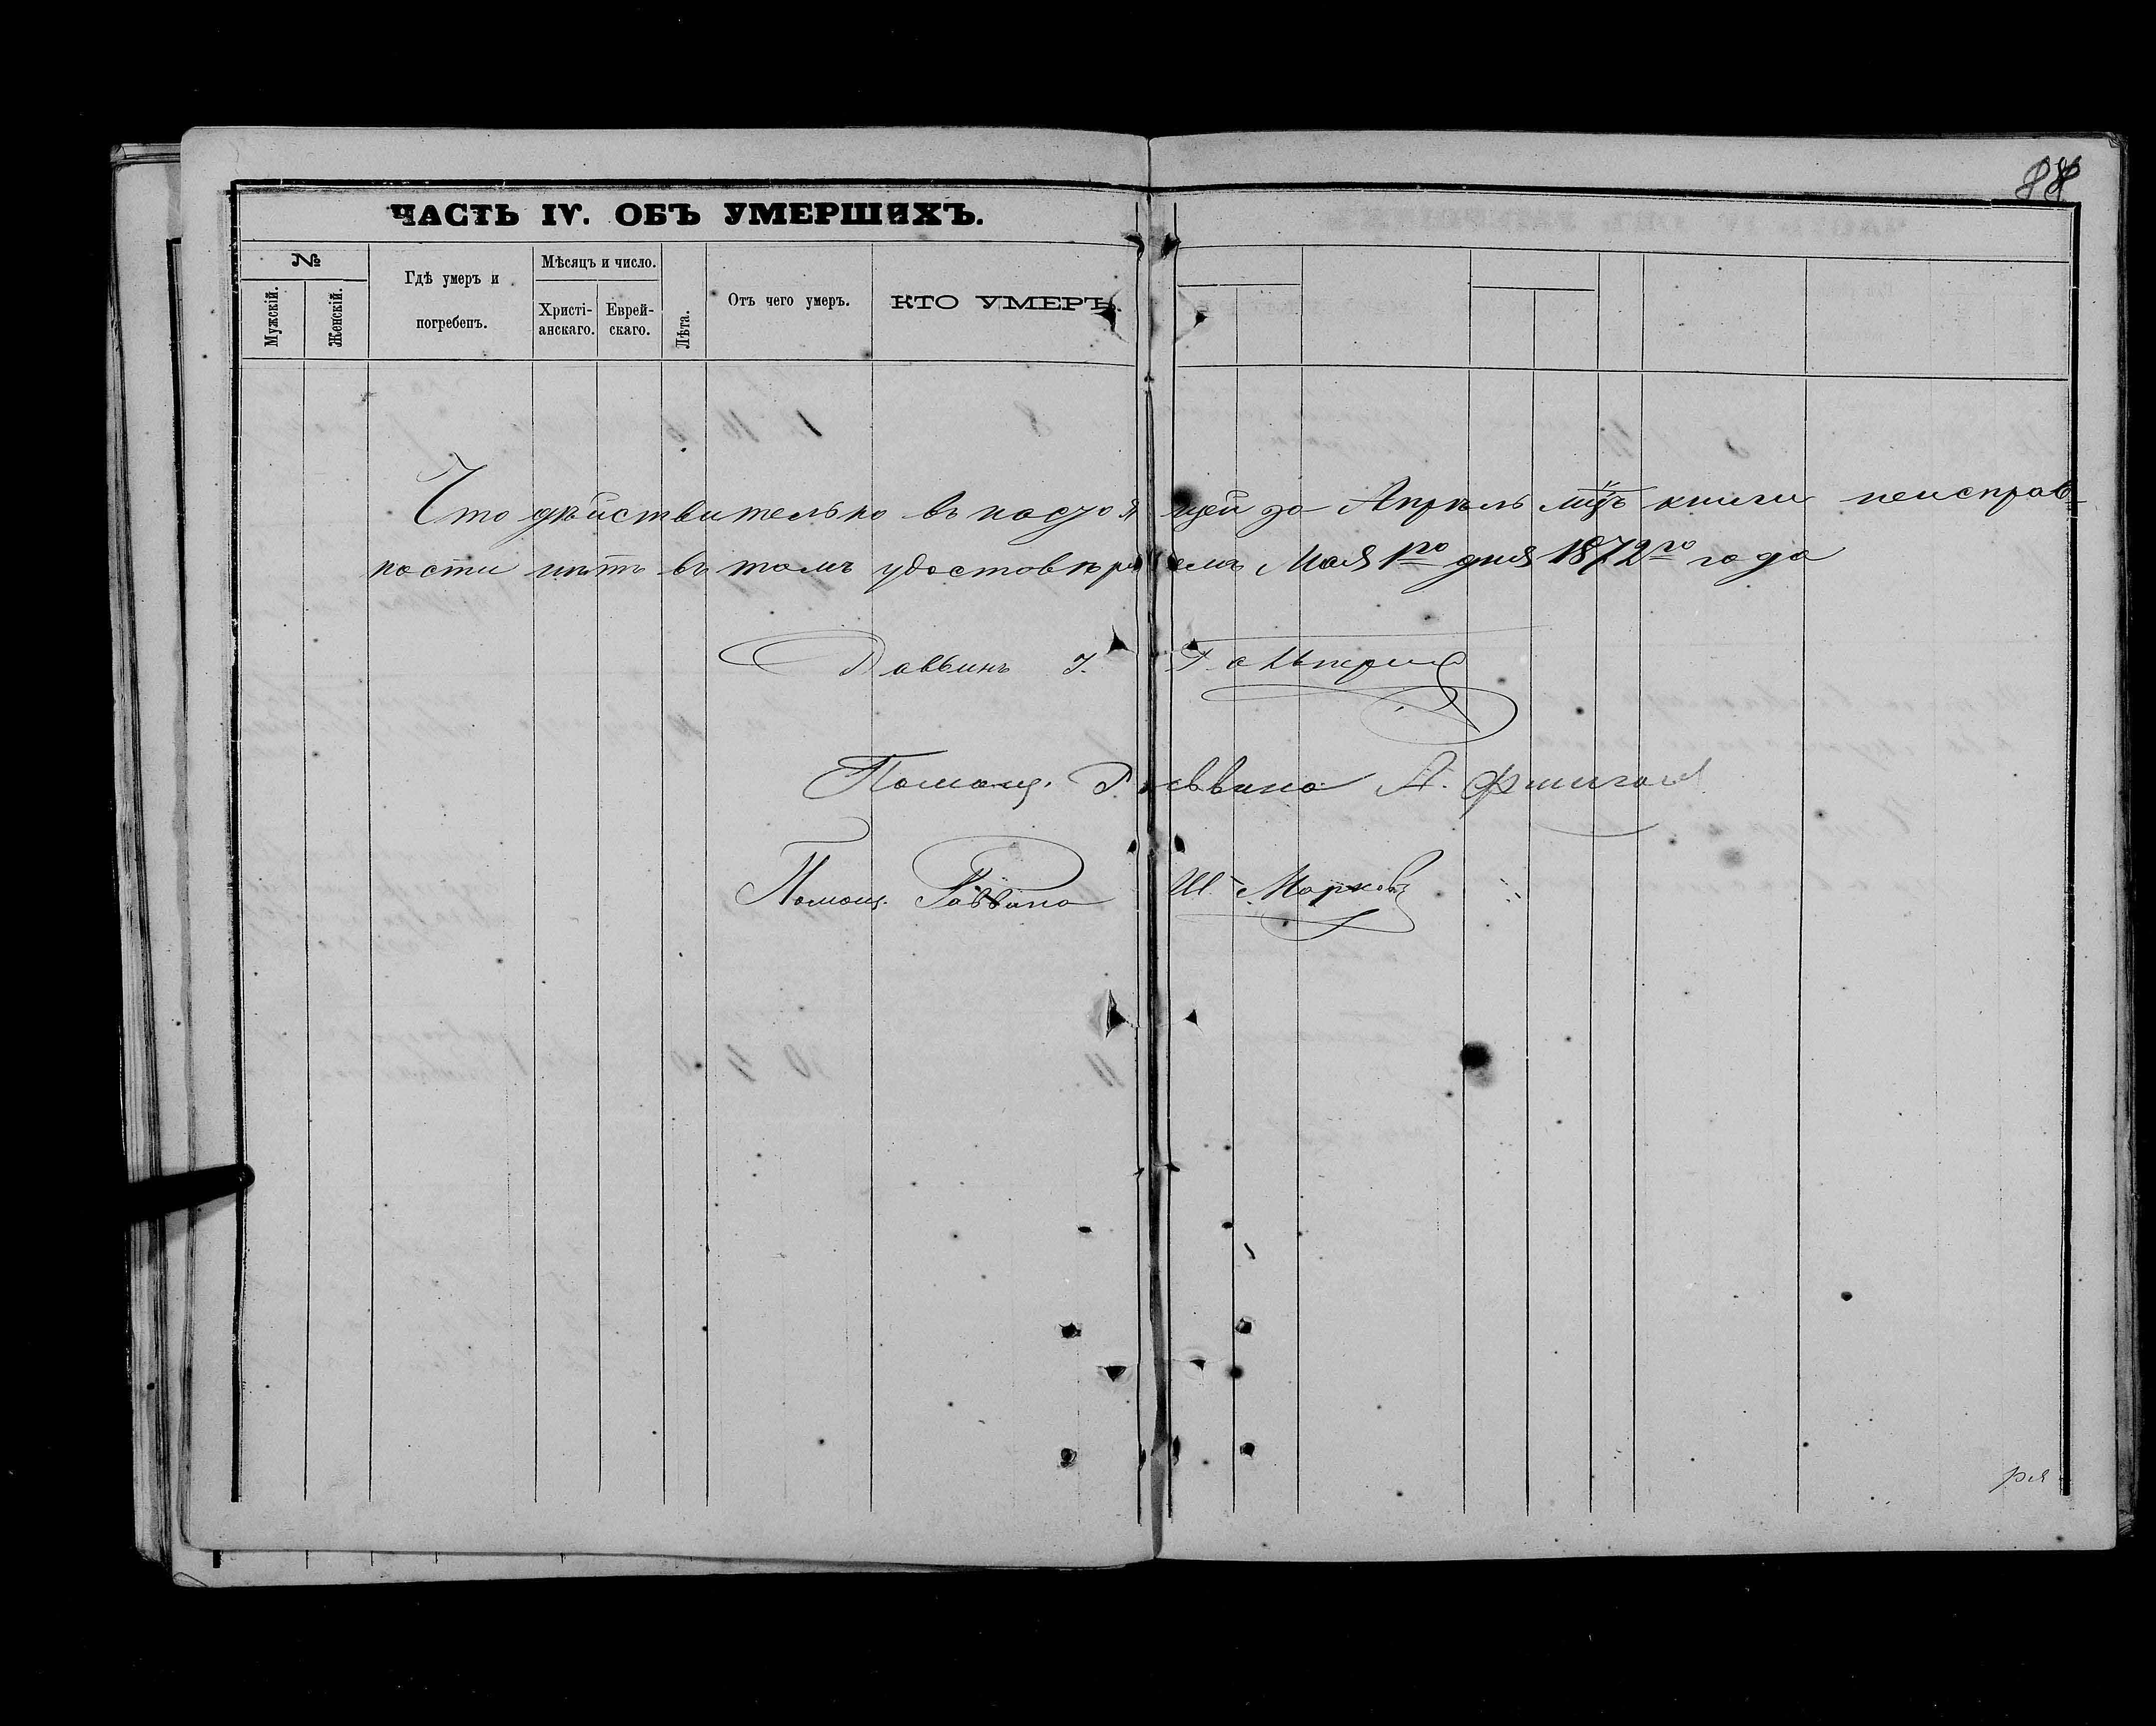 88
ЧАСТЬ IV. ОБЪ УМЕРШИХЪ.
№
Мужскій.
Женскій.
Гдѣ умеръ и
погребенъ.
Мѣсяцъ и число.
Христі-
анскаго.
Еврей-
скаго.
Лѣта.
Отъ чего умеръ.
КТО УМЕРЪ.
Что дѣйствительно въ настоящей за Апрѣль мцъ книги неисправ-
ности нѣтъ въ томъ удостовѣряемъ Мая 1го дня 1872го года
Раввинъ І.
Помощ. Раввина А.
Помощ. Раввина Ш. Марковъ